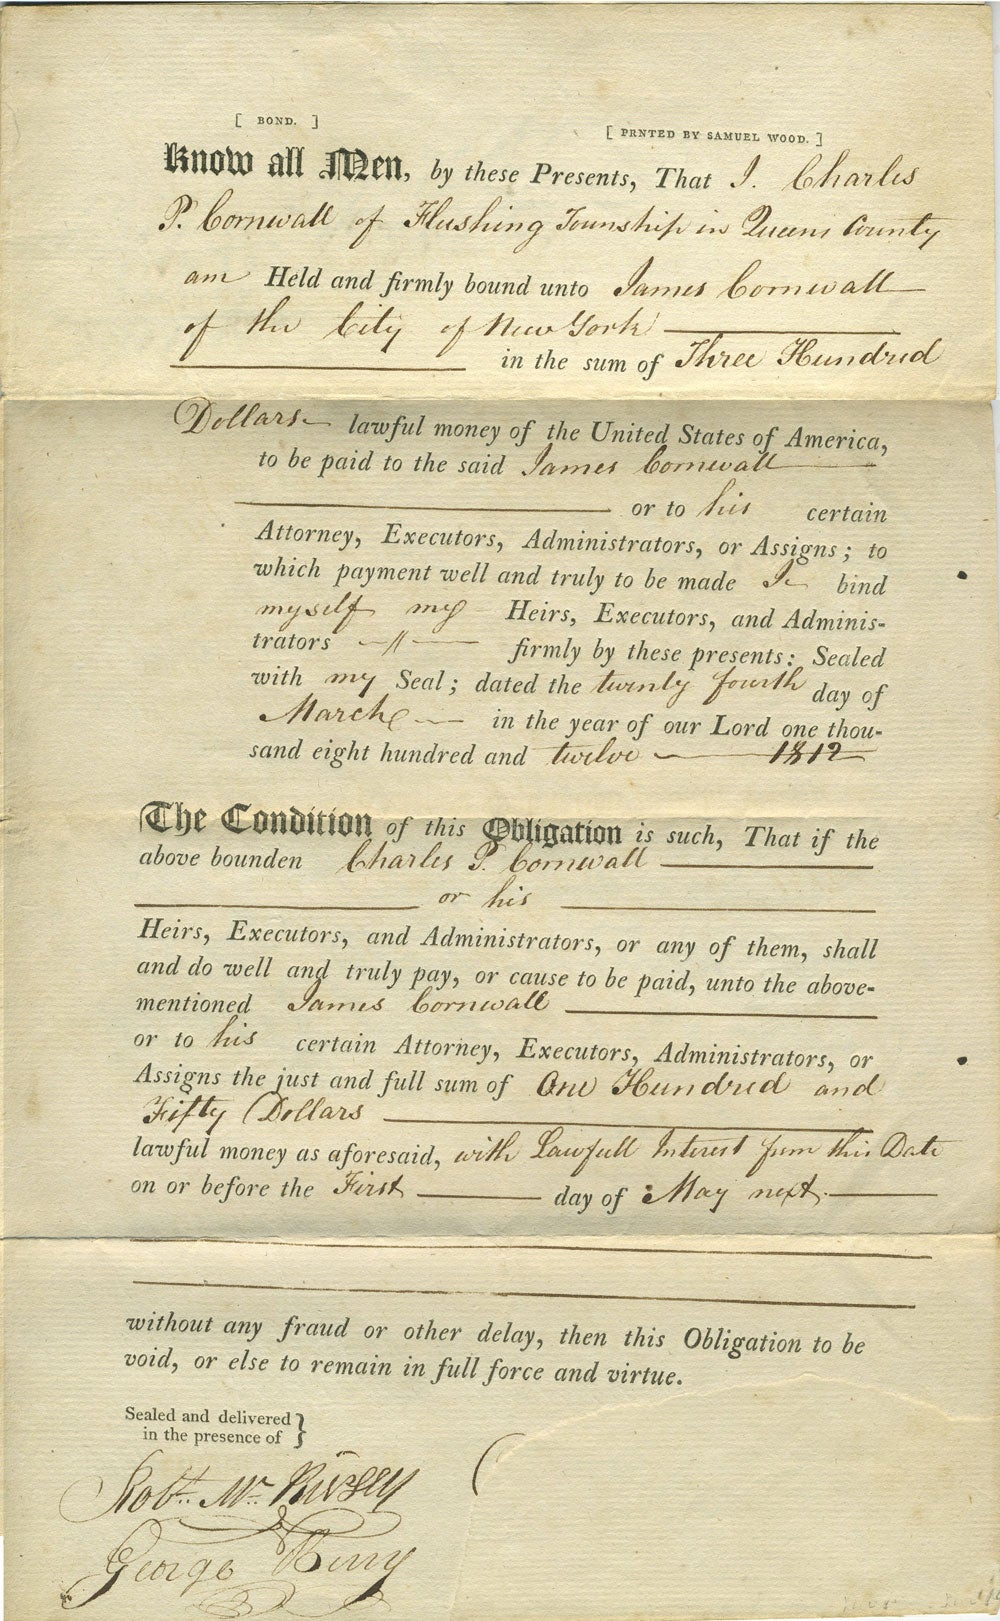 [ BOND. ]
[ PRNTED BY SAMUEL WOOD. ]
Know all Men, by these Presents, That I. Charles
P. Cornwall of Flushing Township in Queens County
am Held and firmly bound unto James Cornwall
of the City of New York
in the sum of Three Hundred
Dollars lawful money of the United States of America,
to be paid to the said James Cornwall
or to his certain
Attorney, Executors, Administrators, or Assigns; to
which payment well and truly to be made I bind
myself my Heirs, Executors, and Adminis-
trators firmly by these presents: Sealed
with my Seal; dated the twenty fourth day of
March in the year of our Lord one thou-
sand eight hundred and twelve 1812
The Condition of this Obligation is such, That if the
above bounden Charles P. Cornwall
or his
Heirs, Executors, and Administrators, or any of them, shall
and do well and truly pay, or cause to be paid, unto the above-
mentioned James Cornwall
or to his certain Attorney, Executors, Administrators, or
Assigns the just and full sum of One Hundred and
Fifty Dollars
lawful money as aforesaid, with Lawfull Interest from this Date
on or before the First day of May next
without any fraud or other delay, then this Obligation to be
void, or else to remain in full force and virtue.
Sealed and delivered }
in the presence of
Robt. Mc.
George Berry